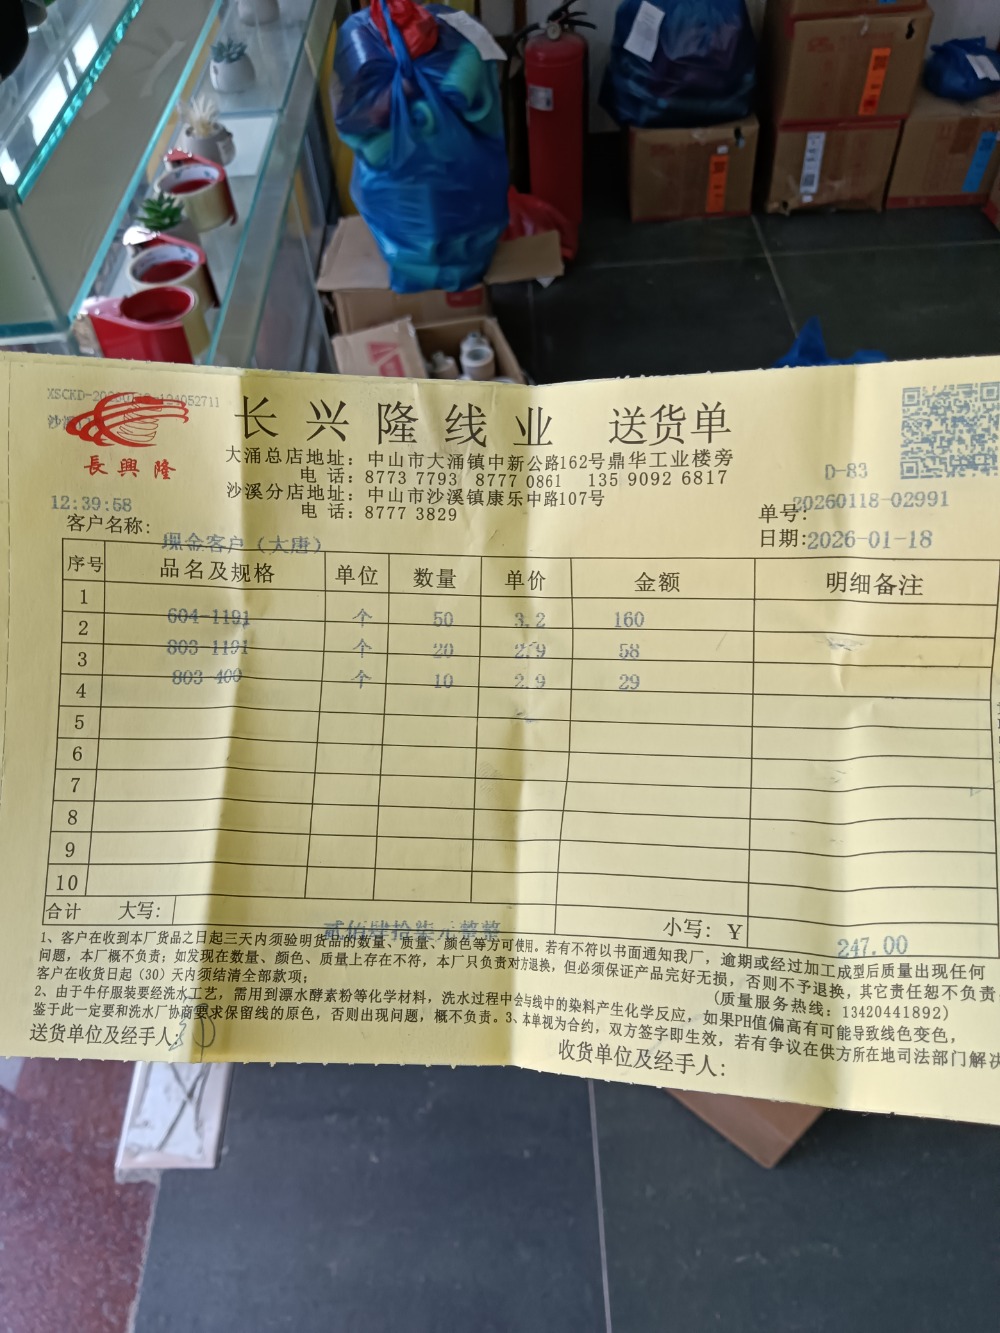 長興隆
长兴隆线业 送货单
大涌总店地址：中山市大涌镇中新公路162号鼎华工业楼旁
电 话：8773 7793 8777 0861 135 9092 6817
沙溪分店地址：中山市沙溪镇康乐中路107号
电 话：8777 3829
D-83
12:39:58
单号：20260118-02991
客户名称：现金客户（大唐）
日期：2026-01-18
序号 品名及规格 单位 数量 单价 金额 明细备注
1 604-1191 个 50 3.2 160
2 803-1191 个 20 2.9 58
3 803-400 个 10 2.9 29
4
5
6
7
8
9
10
合计 大写：贰佰肆拾柒元整整 小写：Y 247.00
1、客户在收到本厂货品之日起三天内须验明货品的数量、质量、颜色等方可使用。若有不符以书面通知我厂，逾期或经过加工成型后质量出现任何
问题，本厂概不负责；如发现在数量、颜色、质量上存在不符，本厂只负责对方退换，但必须保证产品完好无损，否则不予退换，其它责任恕不负责
客户在收货日起（30）天内须结清全部款项；
（质量服务热线：13420441892）
2、由于牛仔服装要经洗水工艺，需用到漂水酵素粉等化学材料，洗水过程中会与线中的染料产生化学反应，如果PH值偏高有可能导致线色变色，
鉴于此一定要和洗水厂协商要求保留线的原色，否则出现问题，概不负责。3、本单视为合约，双方签字即生效，若有争议在供方所在地司法部门解决
送货单位及经手人：
收货单位及经手人：